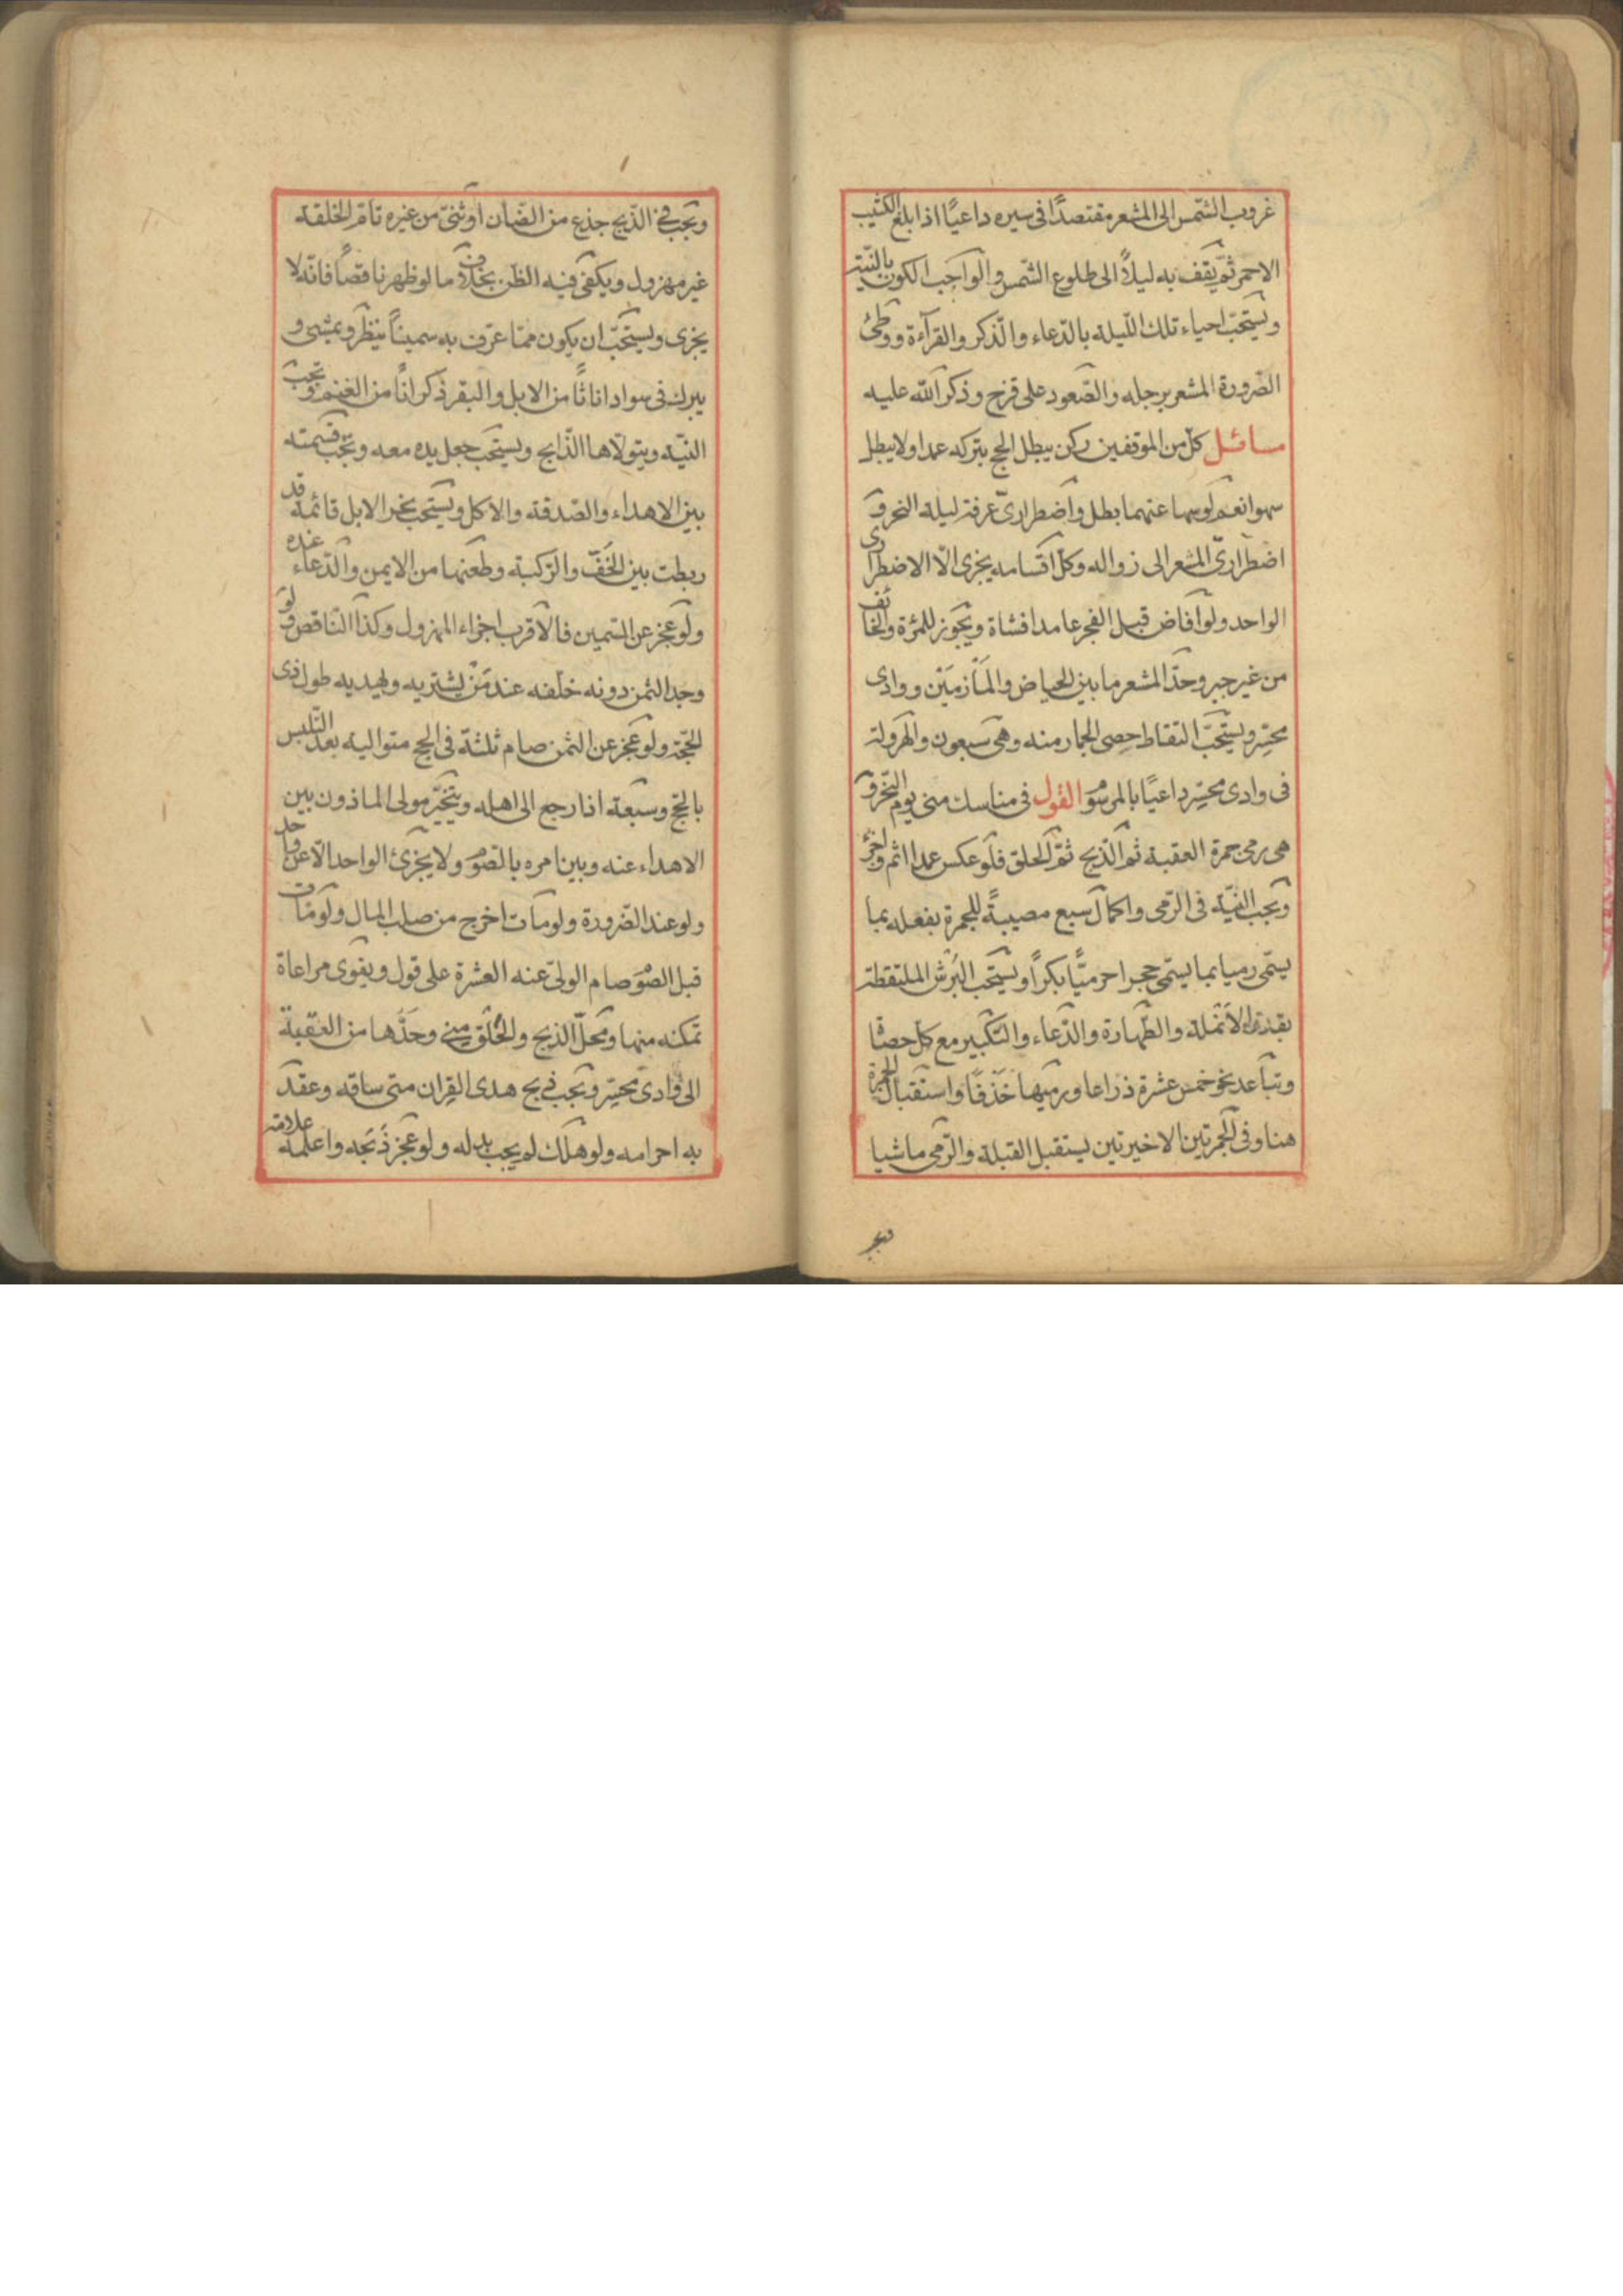 غروب الشّمس الى المشعر مقتصدًا فى سيره داعيًا اذا بلغ الكثيب
الاحمر ثمّ يقف به ليلاً الى طلوع الشّمس والواجب الكون بالنّيّة
ويستحبّ احياء تلك اللّيلة بالدّعاء والذّكر والقرآءة ووطئ
الصّرورة المشعر برجله والصّعود على قزح وذكر الله عليه
مسائل كلّ من الموقفين ركن يبطل الحج بتركه عمدا ولا يبطل
سهوا نعم لو سها عنهما بطل واضطرارىّ عرفة ليلة النحر و
اضطرارىّ المشعر الى زواله وكلّ اقسامه يجزى الّا الاضطرارى
الواحد ولو افاض قبل الفجر عامدا فشاة ويجوز للمرئة والخائف
من غير جبر وحدّ المشعر ما بين الحياض والمأزمين ووادى
محسّر ويستحبّ التقاط حصى الجمار منه وهى سبعون والهرولة
فى وادى محسّر داعيًا بالمرسوم القول فى مناسك منى يوم النّحر و
هى رمى جمرة العقبة ثم الذّبح ثمّ الحلق فلو عكس عمدا اثم واجزء
ويجب النّيّة فى الرّمى واكمال سبع مصيبةً للجمرة بفعله بما
يسمّى رميا بما يسمّى حجرا حرميًّا بكرًا ويستحب البُرش الملتقطة
بقدر الانملة والطّهارة والدّعاء والتّكبير مع كلّ حصاة
وتباعد نحو خمس عشرة ذراعا ورميها خَذفًا واستقبال الجمرة
هنا وفى الجمرتين الاخيرتين يستقبل القبلة والرّمى ماشيا
ويجب فى الذّبح جذع من الضّان او ثنىّ من غيره تامّ الخلقة
غير مهزول ويكفى فيه الظنّ بخلاف ما لو ظهر ناقصًا فانّه لا
يجزى ويستحبّ ان يكون ممّا عرّف به سمينًا ينظر ويمشى و
يبرك فى سواد اناثًا من الابل والبقر ذكرانًا من الغنم ويجب
النّيّة ويتولّاها الذّابح ويستحب جعل يده معه ويجب قسمته
بين الاهداء والصّدقة والاكل ويستحب نحر الابل قائمة قد
ربطت بين الخفّ والرّكبة وطعنها من الايمن والدّعاء عنده
ولو عجز عن السّمين فالاقرب اجزاء المهزول وكذا النّاقص ولو
وجد الثمن دونه خلّفه عند مَنْ يشتريه ويهديه طول ذى
الحجّة ولو عجز عن الثمن صام ثلثة فى الحج متوالية بعد التّلبس
بالحجّ وسبعة اذا رجع الى اهله ويتخيّر مولى الماذون بين
الاهداء عنه وبين امره بالصّوم ولا يجزئ الواحد الّا عن واحد
ولو عند الضّرورة ولو مات اخرج من صلب المال ولو مات
قبل الصّوم صام الولىّ عنه العشرة على قول ويقوى مراعاة
تمكنه منها ومحلّ الذبح والحلق منى وحدّها من العقبة
الى وادى محسّر ويجب ذبح هدى القِران متى ساقه وعقد
به احرامه ولو هلك لم يجب بدله ولو عجز ذَبَحه واعلمه علامة